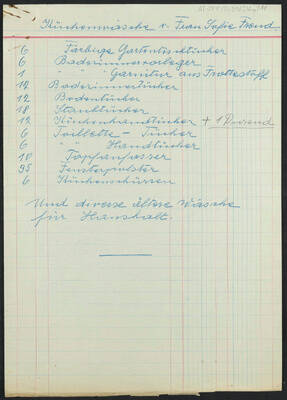 Küchenwäsche v. Frau Sofie Freud
6 Färbige Gartentischtücher
6 Badezimmervorleger
1 " " Garnitur aus Frottestoff
12 Badezimmertücher
12 Bodentücher
18 Staubtücher
12 Küchenhandtücher + 1 Dutzend
6 Toillette - Tücher
6 " Handtücher
10 Topfanfasser
95 Fensterpolster
6 Küchenschürzen
Und diverse ältere Wäsche
für Haushalt.